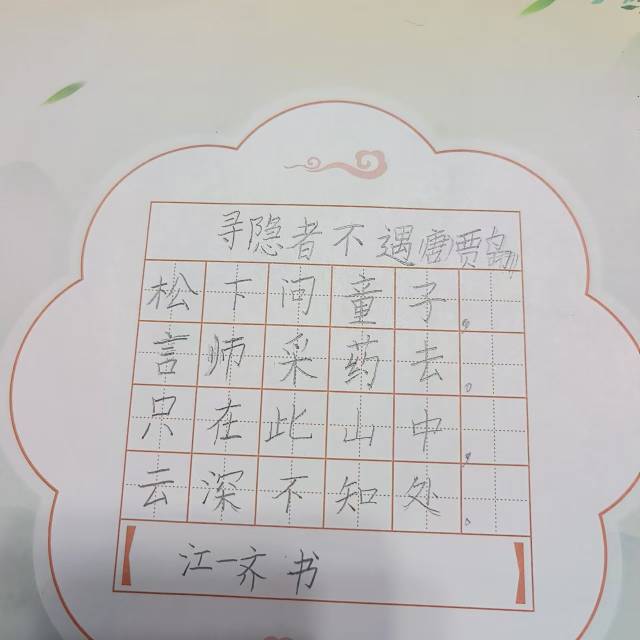 寻隐者不遇唐贾岛
松下问童子，
言师采药去。
只在此山中，
云深不知处。
江一齐 书